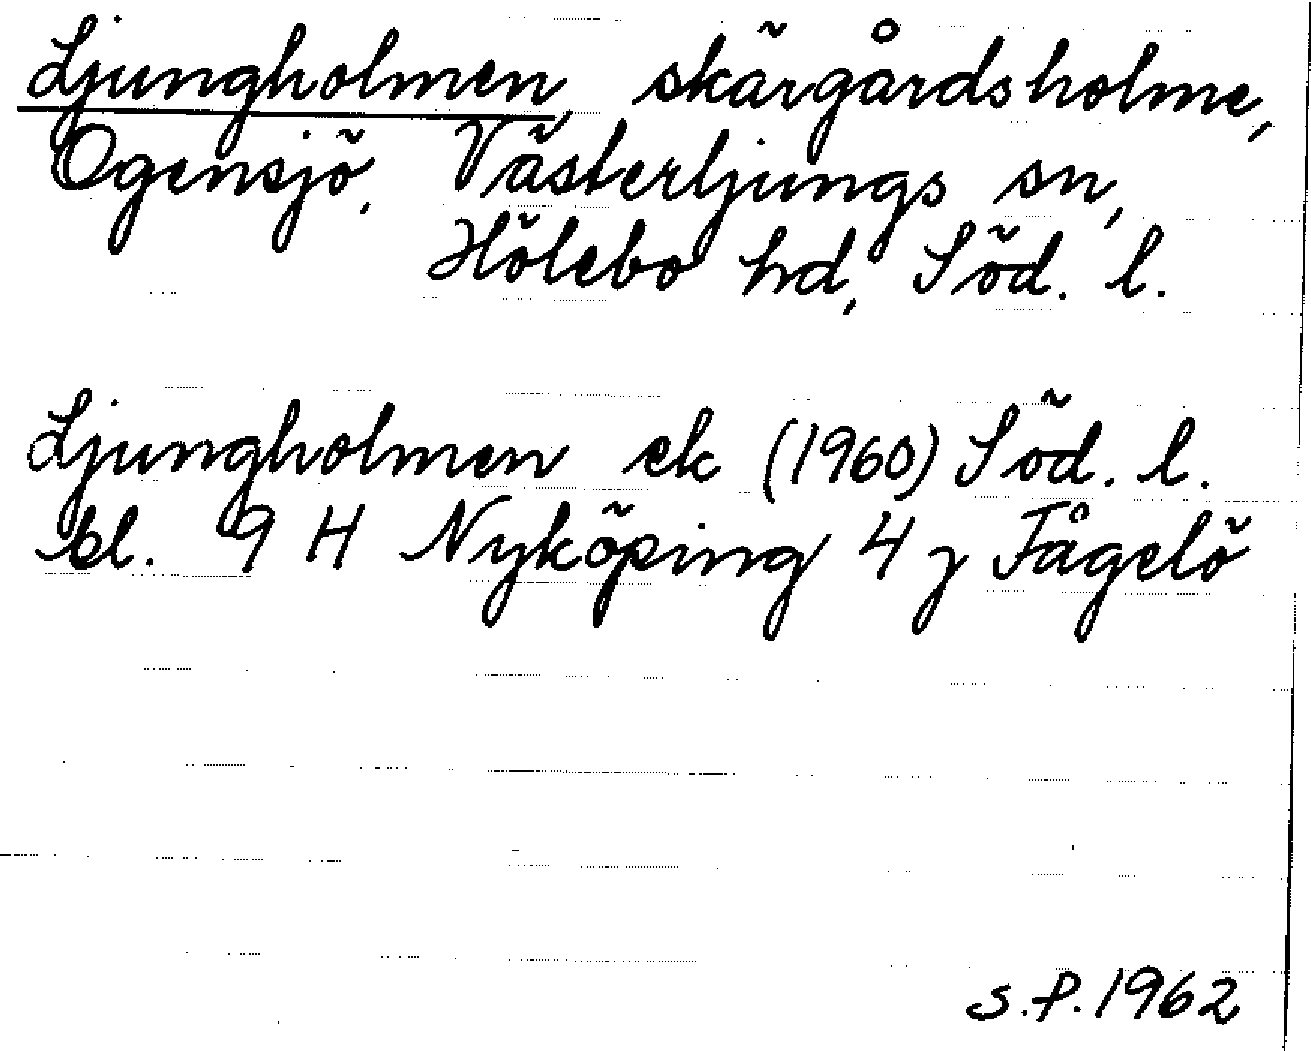 Ljungholmen, skärgårdsholme,
Ogensjö, Västerljungs sn,
Hölebo hd, Söd. l.
Ljungholmen ek (1960) Söd. l.
bl. 9 H Nyköping 4 j Fågelö
S.P. 1962